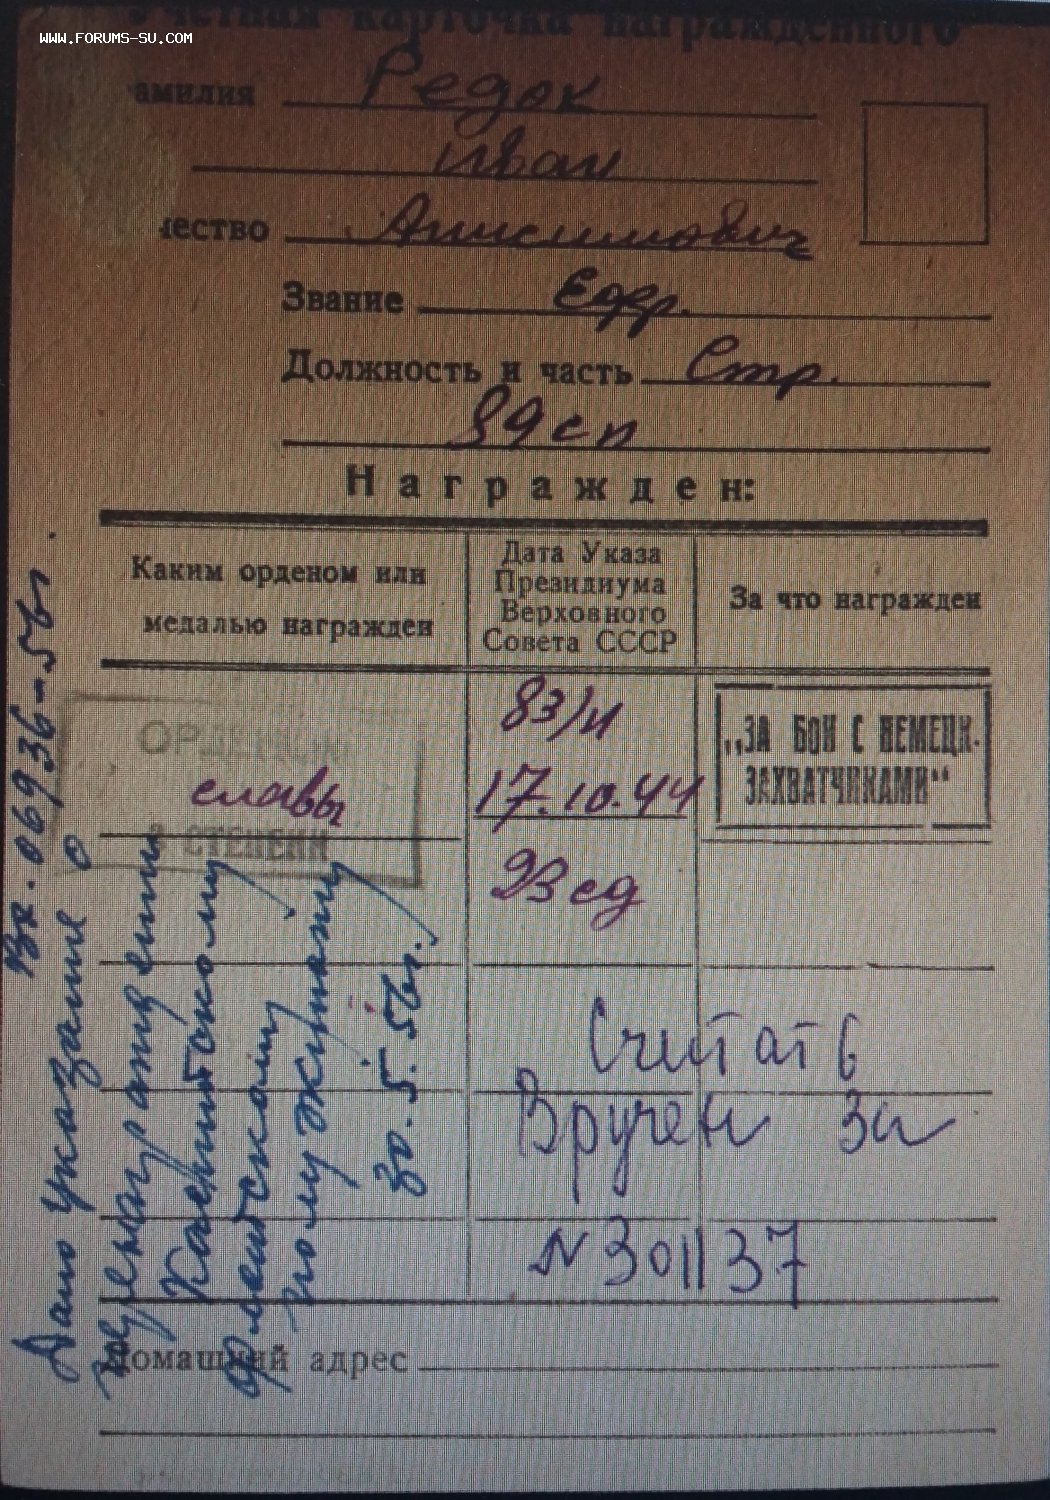 WWW.FORUMS-SU.COM
Учетная карточка награжденного
амилия Редок
Иван
чество Анисимович
Звание Едр.
Должность и часть Стр.
89 сп
Награжден:
Каким орденом или
медалью награжден
Дата Указа
Президиума
Верховного
Совета СССР
За что награжден
ОРДЕНОМ
славы
3 СТЕПЕНИ
83/н
17.10.44
23 сд
„ЗА БОИ С НЕМЕЦК.
ЗАХВАТЧИКАМИ“
Считать
Вручен за
N 301137
Домашний адрес
Вх. 06936-56г.
Дано указание о
награждении
30.5.56г.